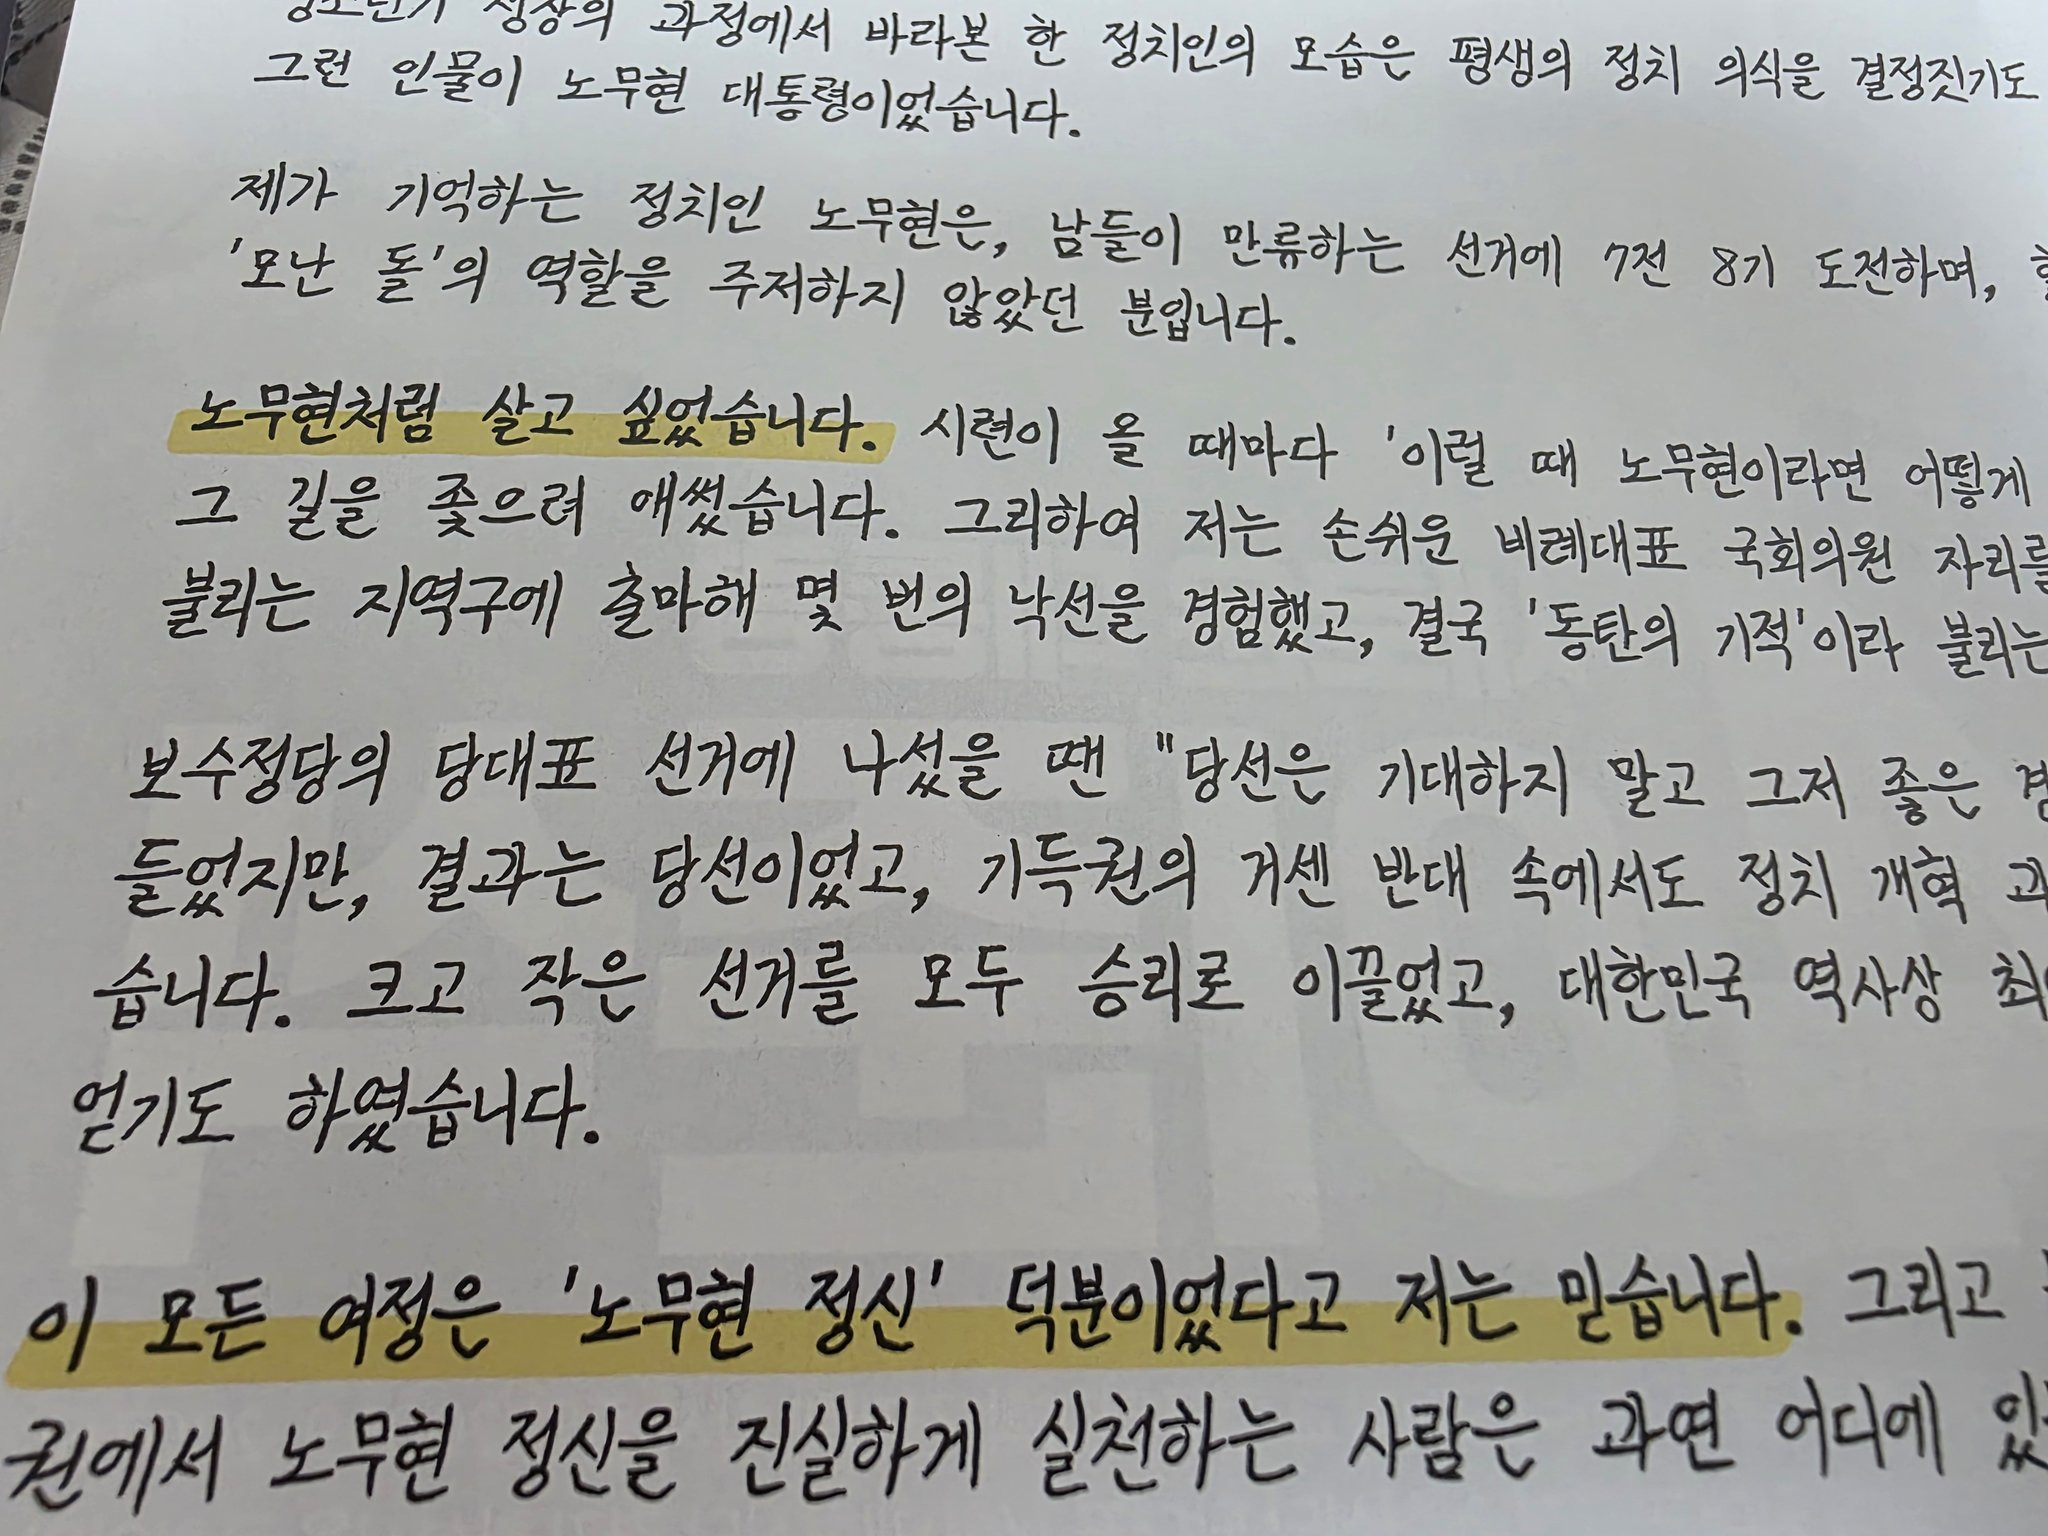 성장의 과정에서 바라본 한 정치인의 모습은 평생의 정치 의식을 결정짓기도
그런 인물이 노무현 대통령이었습니다.
제가 기억하는 정치인 노무현은, 남들이 만류하는 선거에 7전 8기 도전하며,
'모난 돌'의 역할을 주저하지 않았던 분입니다.
노무현처럼 살고 싶었습니다. 시련이 올 때마다 '이럴 때 노무현이라면 어떻게
그 길을 좇으려 애썼습니다. 그리하여 저는 손쉬운 비례대표 국회의원 자리를
불리는 지역구에 출마해 몇 번의 낙선을 경험했고, 결국 '동탄의 기적'이라 불리는
보수정당의 당대표 선거에 나섰을 땐 "당선은 기대하지 말고 그저 좋은
들었지만, 결과는 당선이었고, 기득권의 거센 반대 속에서도 정치 개혁
습니다. 크고 작은 선거를 모두 승리로 이끌었고, 대한민국 역사상
얻기도 하였습니다.
이 모든 여정은 '노무현 정신' 덕분이었다고 저는 믿습니다. 그리고
권에서 노무현 정신을 진실하게 실천하는 사람은 과연 어디에